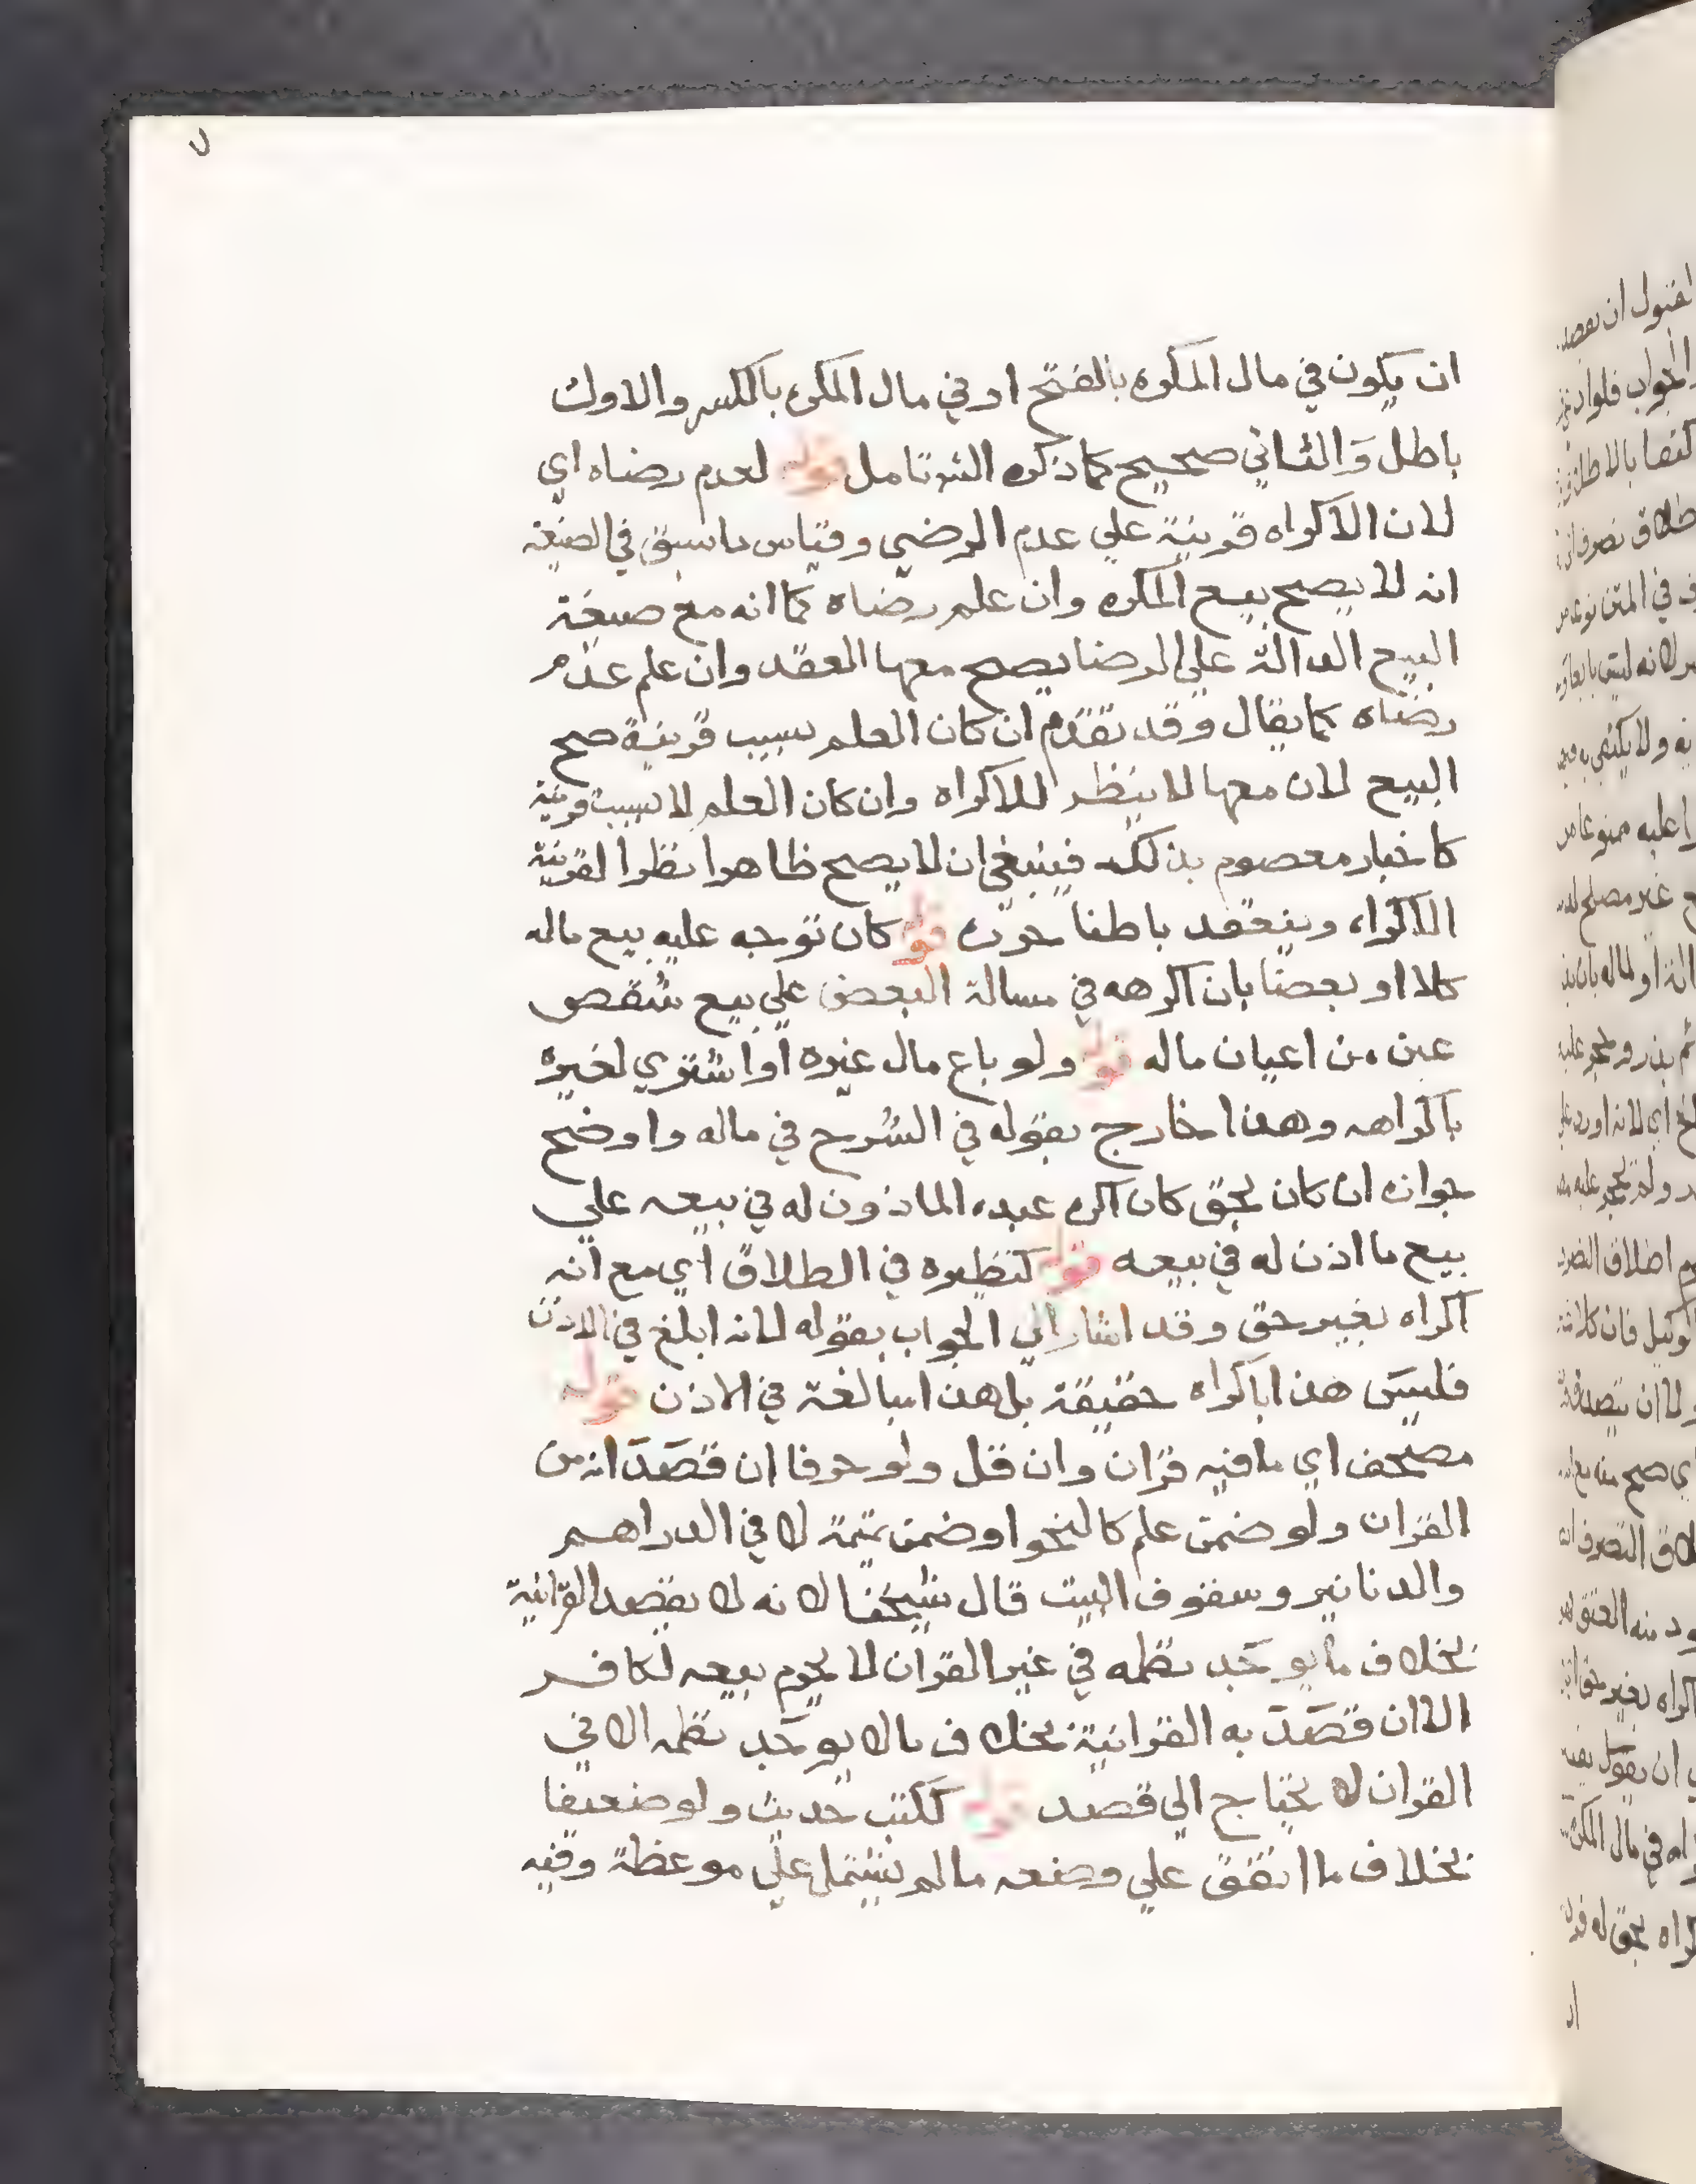 ان يكون في مال المكره بالفتح او في مال المكره بالكسر والاول
باطل والثاني صحيح كما ذكره الشو تامل قوله لعدم رضاه اي
لان الاكراه قرينة علي عدم الرضي وقياس ماسبق في الصيغة
انه لا يصح بيع المكره وان علم رضاه كما انه مع صيغة
البيع الدالة علي الرضا يصح معها العقد وان علم عدم
رضاه كما يقال وقد تقدم ان كان العلم بسبب قرينة صح
البيع لان معها لا ينظر للاكراه وان كان العلم لا بسبب قرينة
كاخبار معصوم بذلك فينبغي ان لا يصح ظاهرا نظرا لقرينة
الاكراه وينعقد باطنا حرث قوله كان توجه عليه بيع ماله
كلا او بعضا بان اكرهه في مسالة البعض علي بيع شقص
عين من اعيان ماله قوله ولو باع مال غيره او اشتري لغيره
باكراهه وهذا خارج بقوله في الشرح في ماله واوضح
جوازه ان كان بحق كان اكره عبده الماذون له في بيعه علي
بيع ما اذن له في بيعه قوله كنظيره في الطلاق اي مع انه
اكراه بغير حق وقد اشار الي الجواب بقوله لانه ابلغ في الاذن
فليس هذا باكراه حقيقة بل هذا مبالغة في الاذن قوله
مصحف اي ما فيه قران وان قل ولو حرفا ان قصد انه من
القران ولو ضمن علم كالنحو او ضمن تميمة لا في الدراهم
والدنانير وسقوف البيت قال شيخنا لانه لا يقصد القرانية
بخلاف ما يوجد نظمه في غير القران لا يحرم بيعه لكافر
الا ان قصد به القرانية بخلاف ما لا يوجد نظمه الا في
القران لا يحتاج الي قصد قوله ككتب حديث ولو ضعيفا
بخلاف ما اتفق علي وضعه ما لم يشتمل علي موعظة وفيه